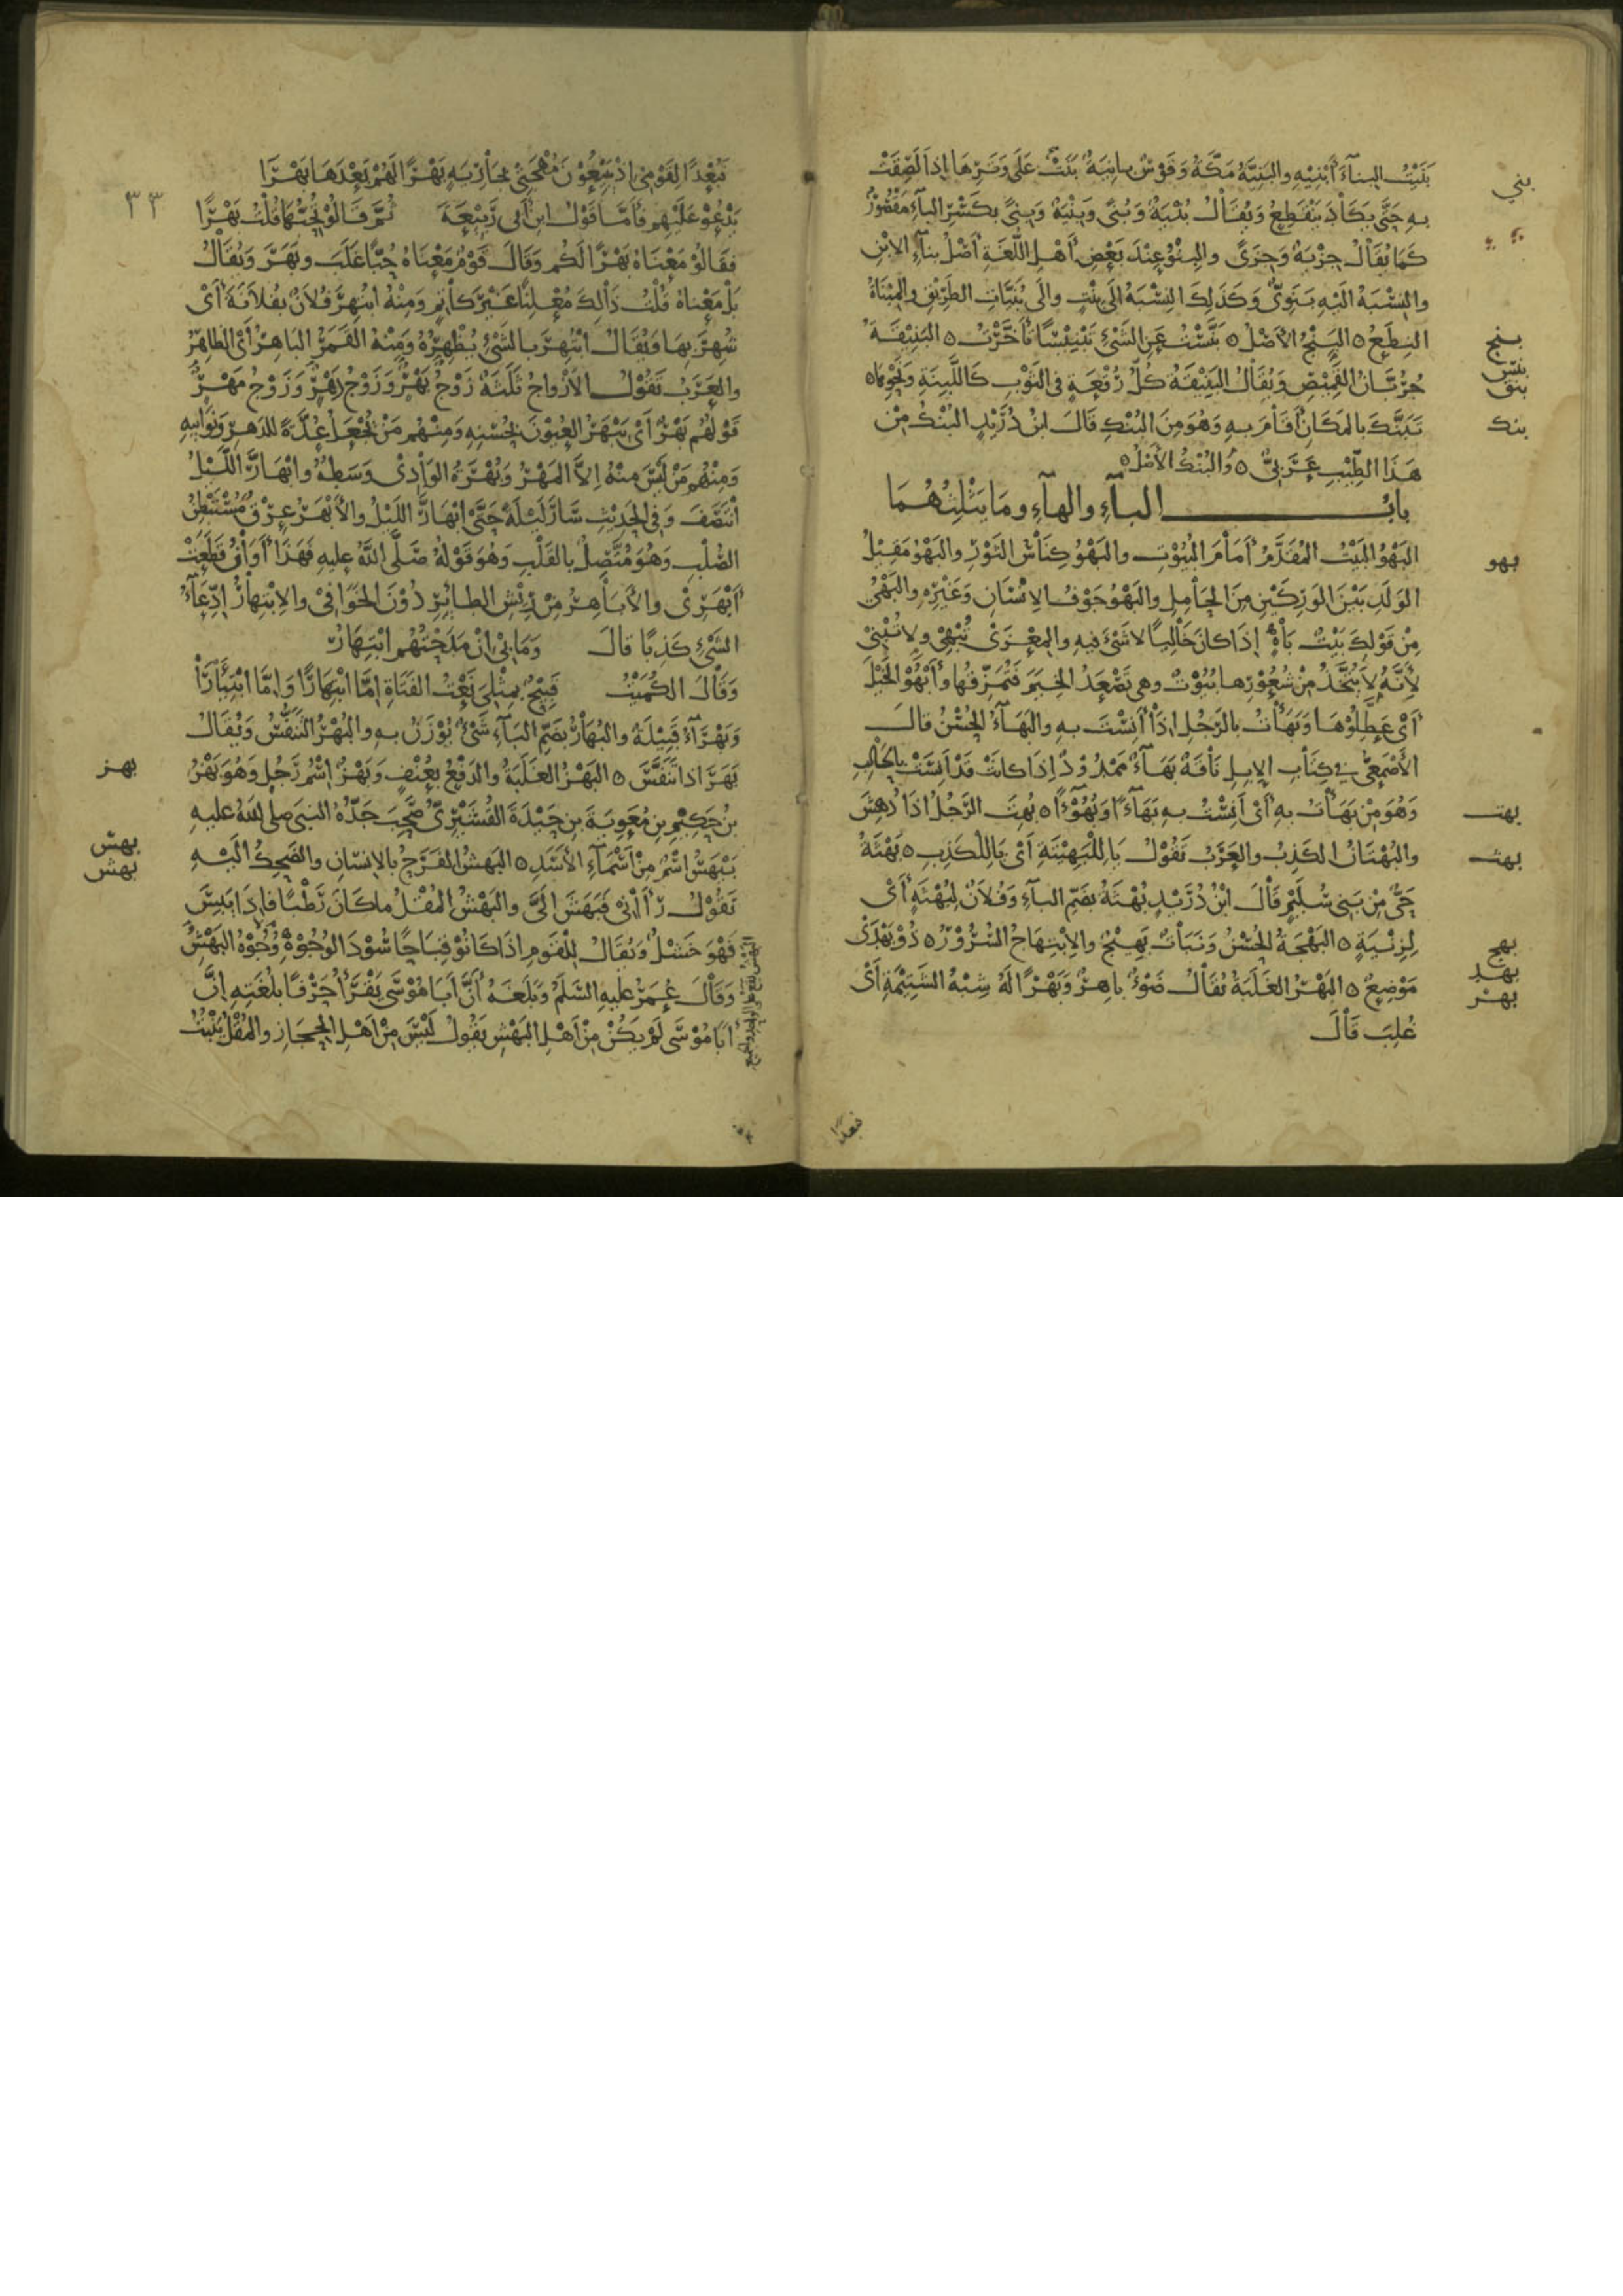 بَنَيْتُ البناءَ أَبْنِيهِ والبَنِيَّةُ مَكَّةُ وَقَوْسٌ بانِيَةٌ بَنَتْ عَلَى وَتَرِهَا إِذَا لَصِقَتْ
بني
بِهِ حَتَّى يَكَادَ يَنْقَطِعُ وَيُقَالُ بُنْيَةٌ وَبُنًى وَبِنْيَةٌ وَبِنًى بِكَسْرِ الباءِ مَقْصُورٌ
كَمَا يُقَالُ جِزْيَةٌ وَجِزًى والبنُوُّ عِنْدَ بَعْضِ أَهْلِ اللُّغَةِ أَصْلُ بناءِ الابْنِ
والنِسْبَةُ الَيْهِ بَنَوِيٌّ وَكَذَلِكَ النِسْبَةُ الَى بِنْتٍ والَى بُنَيَّاتِ الطَرِيقِ والمِبْنَاةُ
النِطَعُ ٥ البِنْجُ الأَصْلُ ٥ بَنَّسْتُ عَنِ الشَّيْءِ تَبْنِيسًا تَأَخَّرْتُ ٥ البَنِيقَةُ
بنج
بنس
جُرُبَّانُ القَمِيصِ وَيُقَالُ البَنِيقَةُ كُلُّ رُقْعَةٍ فِي الثَوْبِ كَاللَّبِنَةِ وَنَحْوِهَا ٥
بنق
تَبَنَّكَ بالمَكَانِ أَقَامَ بِهِ وَهُوَ مِنَ البُنْكِ قَالَ ابْنُ دُرَيْدٍ البُنْكُ مِنْ
بنك
هَذَا الطِّيْبِ عَرَبِيٌّ ٥ وَالبُنْكُ الأَصْلُ ٥
بابُ الباءِ والهاءِ ومَا يَثْلِثُهُمَا
البَهْوُ البَيْتُ المُقَدَّمُ أَمَامَ البُيُوتِ والبَهْوُ كِنَاسُ الثَوْرِ والبَهْوُ مَقِيلُ
بهو
الوَلَدِ بَيْنَ الوَرِكَيْنِ مِنَ الحَامِلِ والبَهْوُ جَوْفُ الإِنْسَانِ وَغَيْرِهِ والبَهْيُ
مِنْ قَوْلِكَ بَيْتٌ بَاهٍ إِذَا كَانَ خَالِيًا لاشَيْءَ فِيهِ والمِعْزَى تُبْهِي وَلا تُبْنِي
لأَنَّهُ لاَ يُتَّخَذُ مِنْ شُعُورِهَا بُيُوتٌ وهي تَصْعَدُ الخِيَمَ فَتُمَزِّقُهَا وَأَبْهُوا الخَيْلَ
أَيْ عَطِّلُوهَا وَبَهَأْتُ بالرَجُلِ اذَا أَنِسْتَ بِهِ والبَهَاءُ الحُسْنُ قالَ
الأَصْمَعِيُّ في كِتَابِ الإبِلِ نَاقَةٌ بَهَاءٌ مَمْدُودٌ إِذَا كَانَتْ قَدْ أَنِسَتْ بِالحَالِبِ
وَهُوَ مِنْ بَهَأْتُ بِهِ أَيْ أَنِسْتُ بِهِ بَهَاءً وَبُهُوءًا ٥ بُهِتَ الرَّجُلُ اذَا دُهِشَ
بهت
والبُهْتَانُ الكَذِبُ والعَرَبُ تَقُولُ يَا لِلْبَهِيتَةِ أَيْ يَا لِلكَذِبِ ٥ بُهْثَةُ
بهث
حَيٌّ مِنْ بَنِي سُلَيْمٍ قَالَ ابْنُ دُرَيْدٍ بُهْثَةُ بِضَمِّ الباءِ وَفُلاَنٌ لِبُهْثَةٍ أَيْ
لِزِنْيَةٍ ٥ البَهْجَةُ الحُسْنُ وَنَبَاتٌ بَهِيجٌ والاِبْتِهَاجُ السُّرُورُ ٥ ذُو بَهْدَى
بهج
بهد
مَوْضِعٌ ٥ البَهْرُ الغَلَبَةُ يُقَالُ ضَوْءٌ باهِرٌ وَبَهْرًا لَهُ شِبْهُ الشَتِيمَةِ أَيْ
بهر
غُلِبَ قَالَ
تبعدًا
٣٣
فَبُعْدًا لِقَوْمِي اذْ يَبِيعُونَ مُهْجَتِي بِجَارِيَةٍ بَهْرًا لَهُمْ بَعْدَهَا بَهْرَا
يَدْعُو عَلَيْهِم فَأَمَّا قَوْلُ ابنِ أبي رَبِيعَةَ ثُمَّ قَالُوا تُحِبُّهَا قُلْتُ بَهْرًا
فَقَالُوا مَعْنَاهُ بَهْرًا لَكُم وَقَالَ قَوْمٌ مَعْنَاهُ حُبًّا غَلَبَ وبَهَرَ وَيُقَالُ
بَلْ مَعْنَاهُ قُلْتُ ذَلِكَ مُعْلِنًا غَيْرَ كَاتِمٍ وَمِنْهُ ابْتُهِرَ فُلاَنٌ بِفُلاَنَةَ أَيْ
شُهِرَ بِهَا وَيُقَالُ ابْتُهِرَ بالشَيْءِ بُظْهِيرُهُ وَمِنْهُ القَمَرُ البَاهِرُ أَيِ الظَاهِرُ
والعَرَبُ تَقُولُ الأَزْوَاجُ ثَلَثَةٌ زَوْجُ بَهْرٍ وَزَوْجُ دَهْرٍ وَزَوْجُ مَهْرٍ
قَوْلُهُم بَهْرٌ أَيْ يَبْهَرُ العُيُونَ بِحُسْنِهِ وَمِنْهُم مَنْ يُجْعَلُ عُدَّةً للدَهرِ وَنَوَائِبِهِ
وَمِنْهُم مَنْ لَيْسَ مِنْهُ إِلاَّ المَهْرُ وَبُهْرَةُ الوَادِي وَسَطُهُ وابْهَارَّ اللَّيْلُ
انْتَصَفَ وَفِي الحَدِيثِ سَارَ لَيْلَةً حَتَّى ابْهَارَّ اللَيْلُ والأَبْهَرُ عِرْقٌ مُسْتَبْطِنُ
الصُلْبِ وَهُوَ مُتَّصِلٌ بالقَلْبِ وَهُوَ قَوْلُهُ صَلَّى اللهُ عليهِ فَهَذَا أَوَانُ قَطَعَتْ
أَبْهَرِي والأَبَاهِرُ مِنْ رِيْشِ الطائِرِ دُوْنَ الخَوَافِي والابْتِهَارُ ادِّعَاءُ
الشَيْءِ كَذِبًا قَالَ وَمَا بِي انْ مَدَحْتُهُم ابْتِهَارُ
وَقَالَ الكُمَيْتُ قَبِيحٌ بِمِثْلِيَ نَعْتُ الفَتَاةِ إمَّا ابْتِهَارًا وَإمَّا ابْتِيَارَا
وَبَهْرَاءُ قَبِيلَةٌ والبُهَارُ بِضَمِّ البَاءِ شَيْءٌ يُوْزَنُ بِهِ والبُهْرُ التَنَفُّسُ وَيُقَالُ
بَهَرَ اذا تَنَفَّسَ ٥ البَهْزُ الغَلَبَةُ والدَفْعُ بِعُنْفٍ وَبَهْزٌ اسْمُ رَجُلٍ وَهُوَ بَهْزُ
بهز
بن حَكِيمِ بن مُعَوِيَةَ بن حَيْدَةَ القُشَيْرِيُّ صَحِبَ جَدُّهُ النبيَّ صلى اللهُ عليهِ
بَيْهَسُ اسْمٌ مِنْ أَسْمَاءِ الأَسَدِ ٥ البَهشُ الفَرَحُ بالإنسَانِ والضَحِكُ الَيْهِ
بهس
بهش
تَقُولُ رَآنِي فَبَهَشَ الَيَّ والبَهْشُ المُقْلُ ما كَانَ رَطْبًا فَإِذَا يَبِسَ
فَهُوَ خَشْلٌ وَيُقَالُ لِلْقَوْمِ اذَا كَانُوا قِبَاحًا سُوْدَ الوُجُوْهِ وُجُوْهُ البَهْشِ
وَقَالَ عُمَرُ عليهِ السَّلَمُ وَبَلَغَهُ أَنَّ أَبَا مُوْسَى يَقْرَأُ حَرْفًا بِلُغَتِهِ إنَّ
أَبَا مُوْسَى لَمْ يَكُنْ مِنْ أَهْلِ البَهْشِ يَقُولُ لَيْسَ مِنْ أَهْلِ الحِجَازِ والمُقْلُ يَنْبُتُ